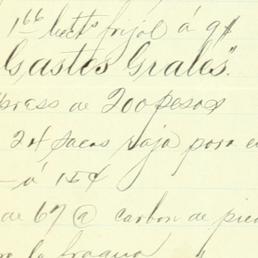 1⁶⁶ hectˢ frijol á 9$
Gastos Grales".
press de 200 pesos
24 sacas raja para e
á 15¢
de 67 @ carbon de pied
la fragua